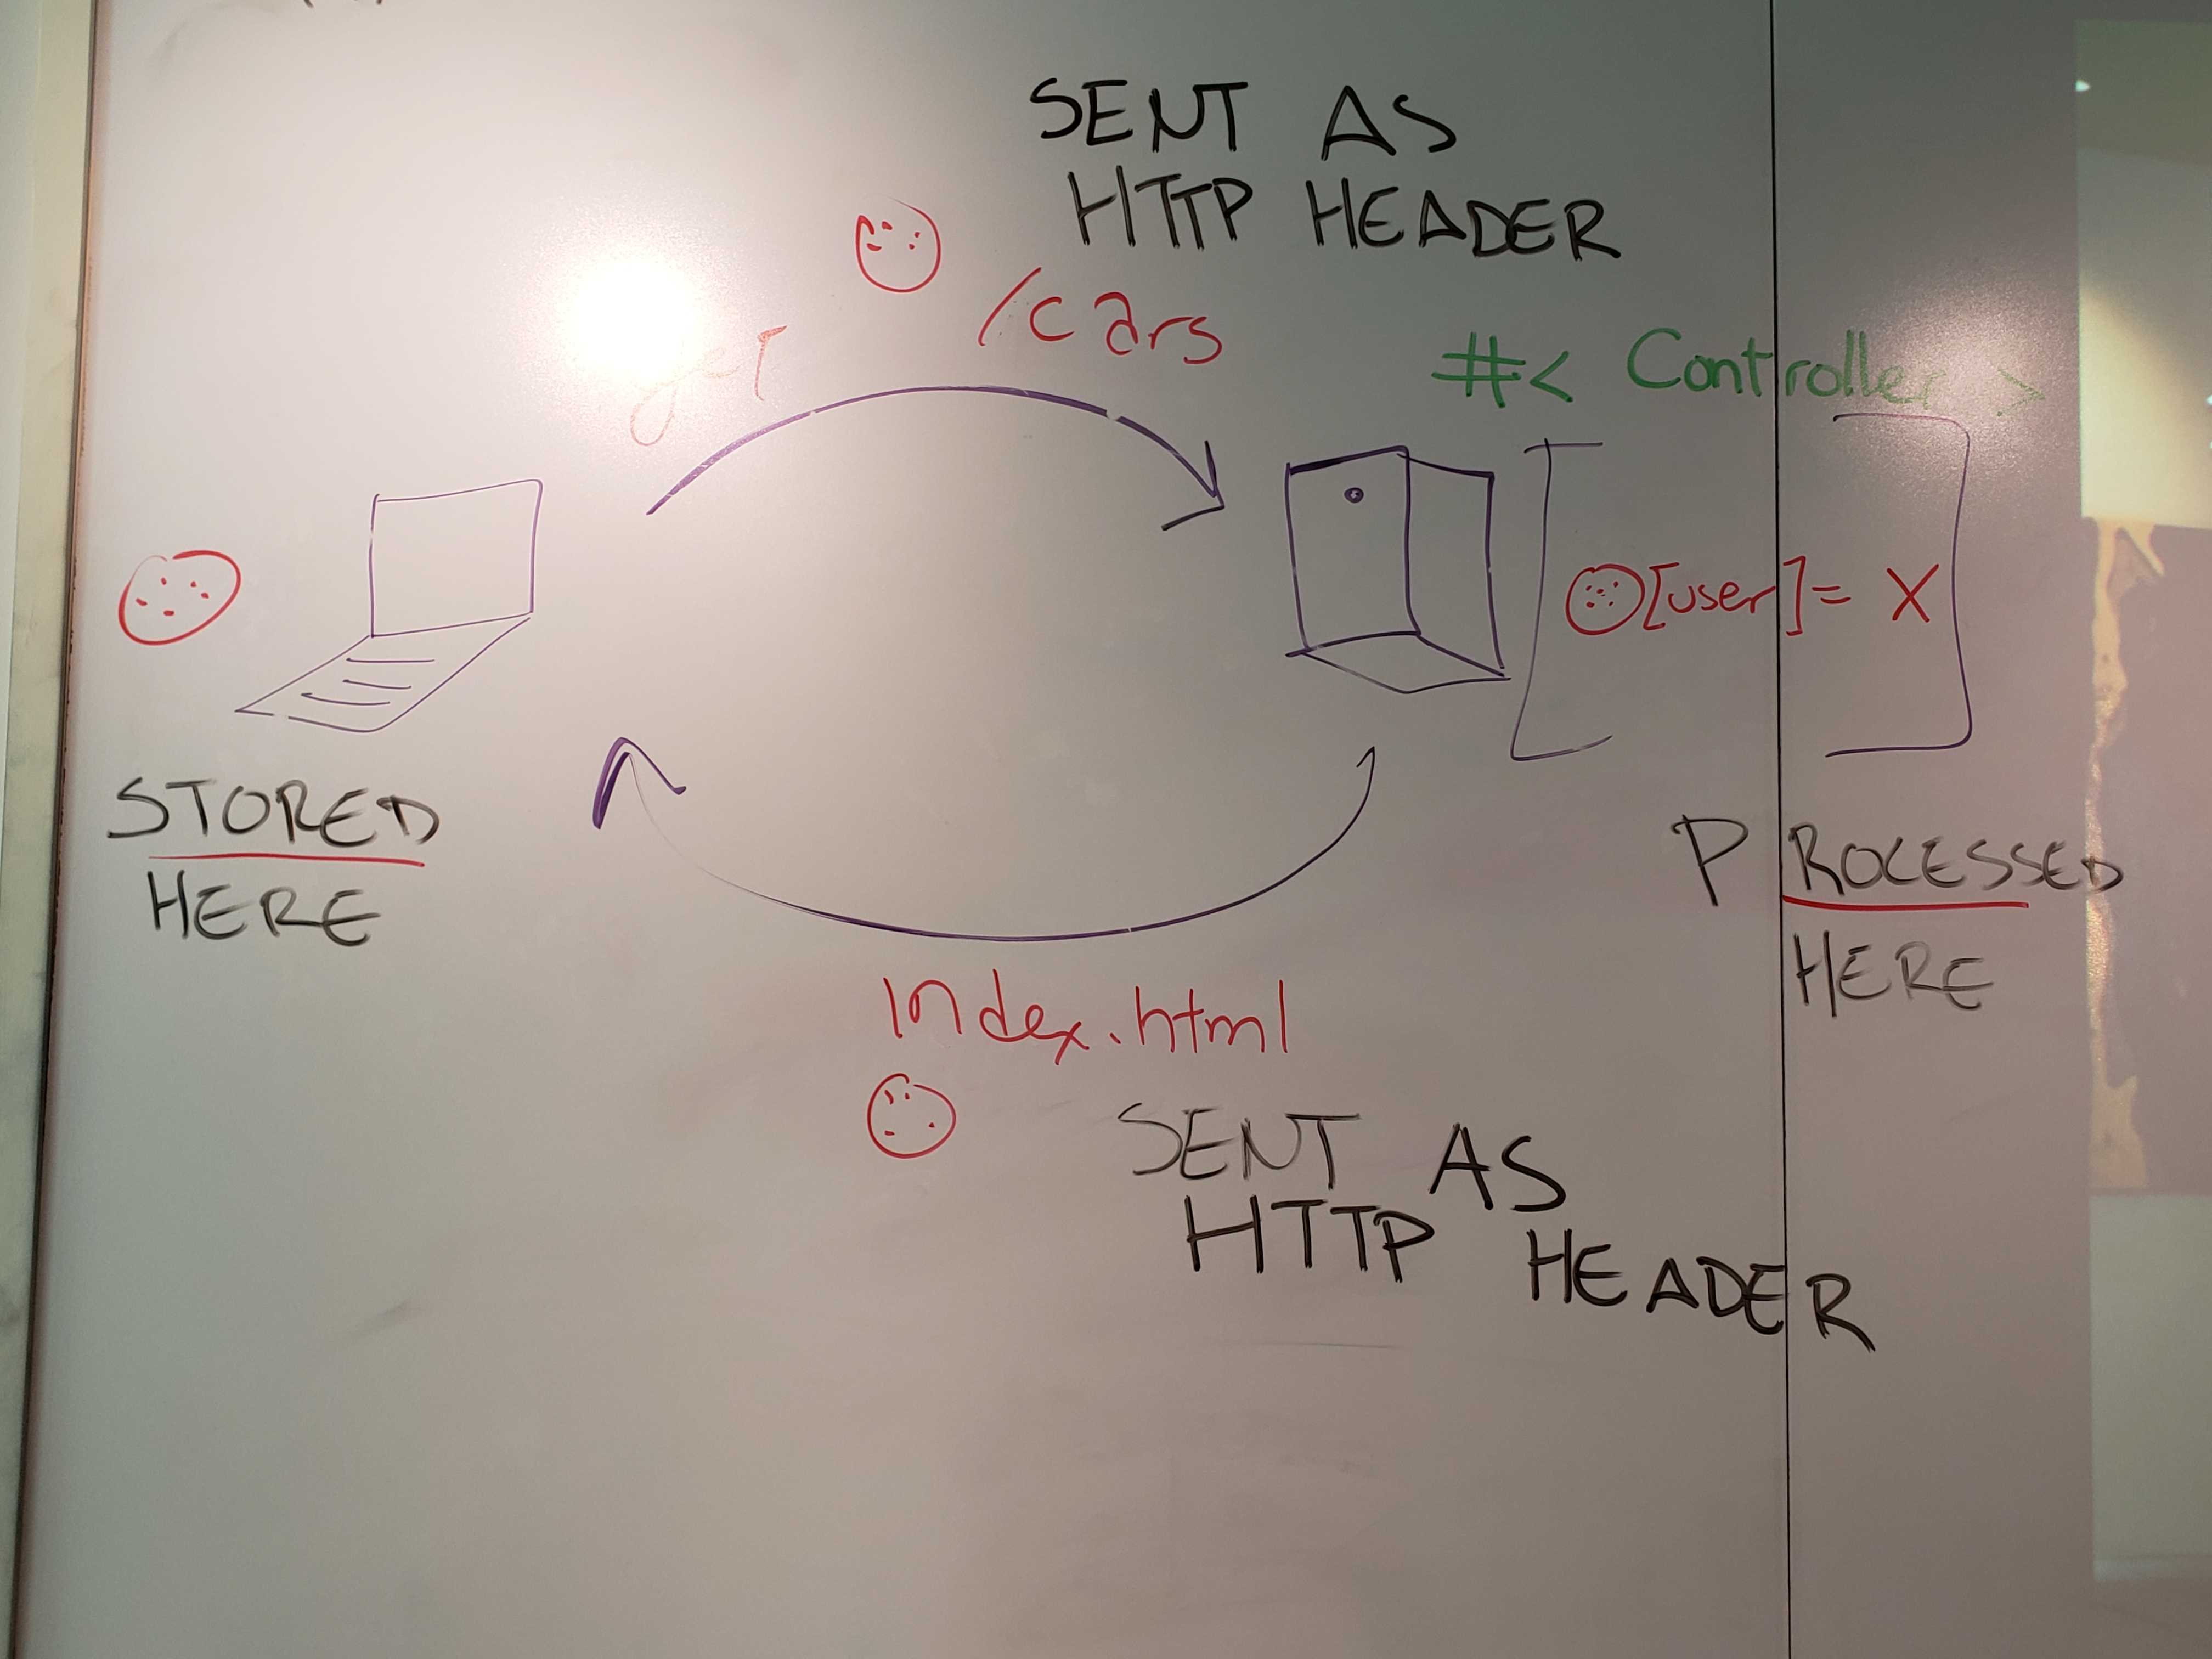 SENT AS
HTTP HEADER
get /cars
#< Controller >
[user] = X
STORED
HERE
PROCESSED
HERE
index.html
SENT AS
HTTP HEADER